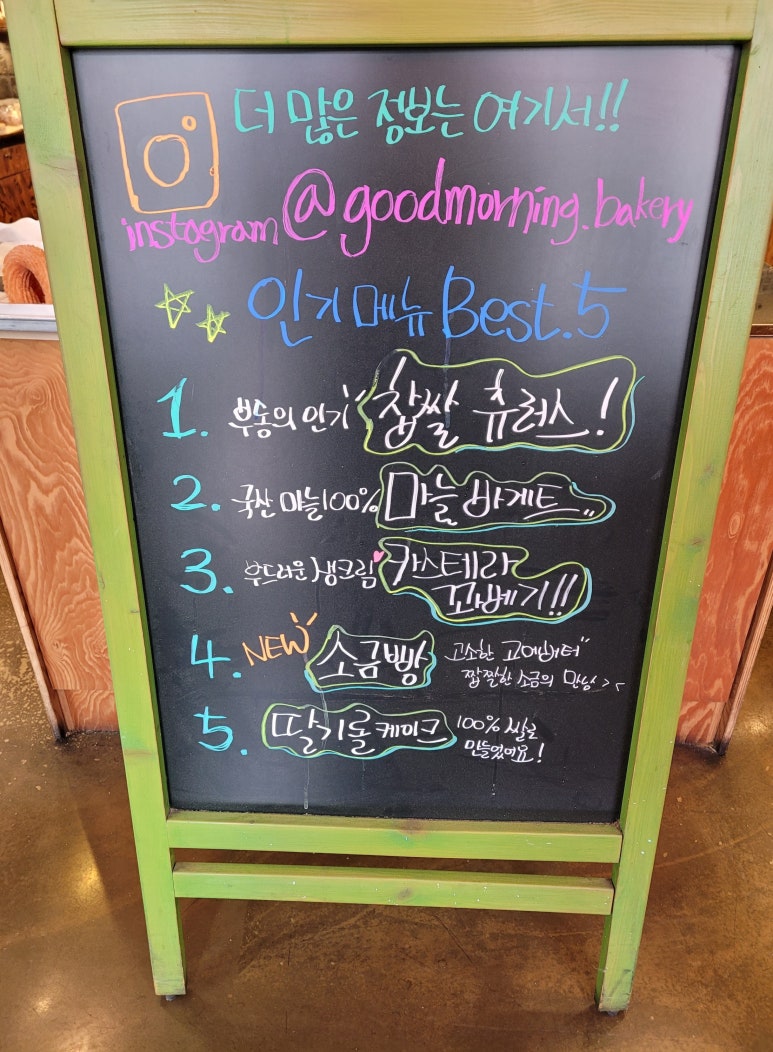 더 많은 정보는 여기서!!
instagram @goodmorning.bakery
인기메뉴 Best.5
1. 부동의 인기 찹쌀 츄러스!
2. 국산 마늘100% 마늘 바게트..
3. 부드러운 생크림 카스테라
꽈베기!!
4. NEW 소금빵 고소한 고메버터
짭짤한 소금의 만남><
5. 딸기롤케이크 100% 쌀로
만들었어요!